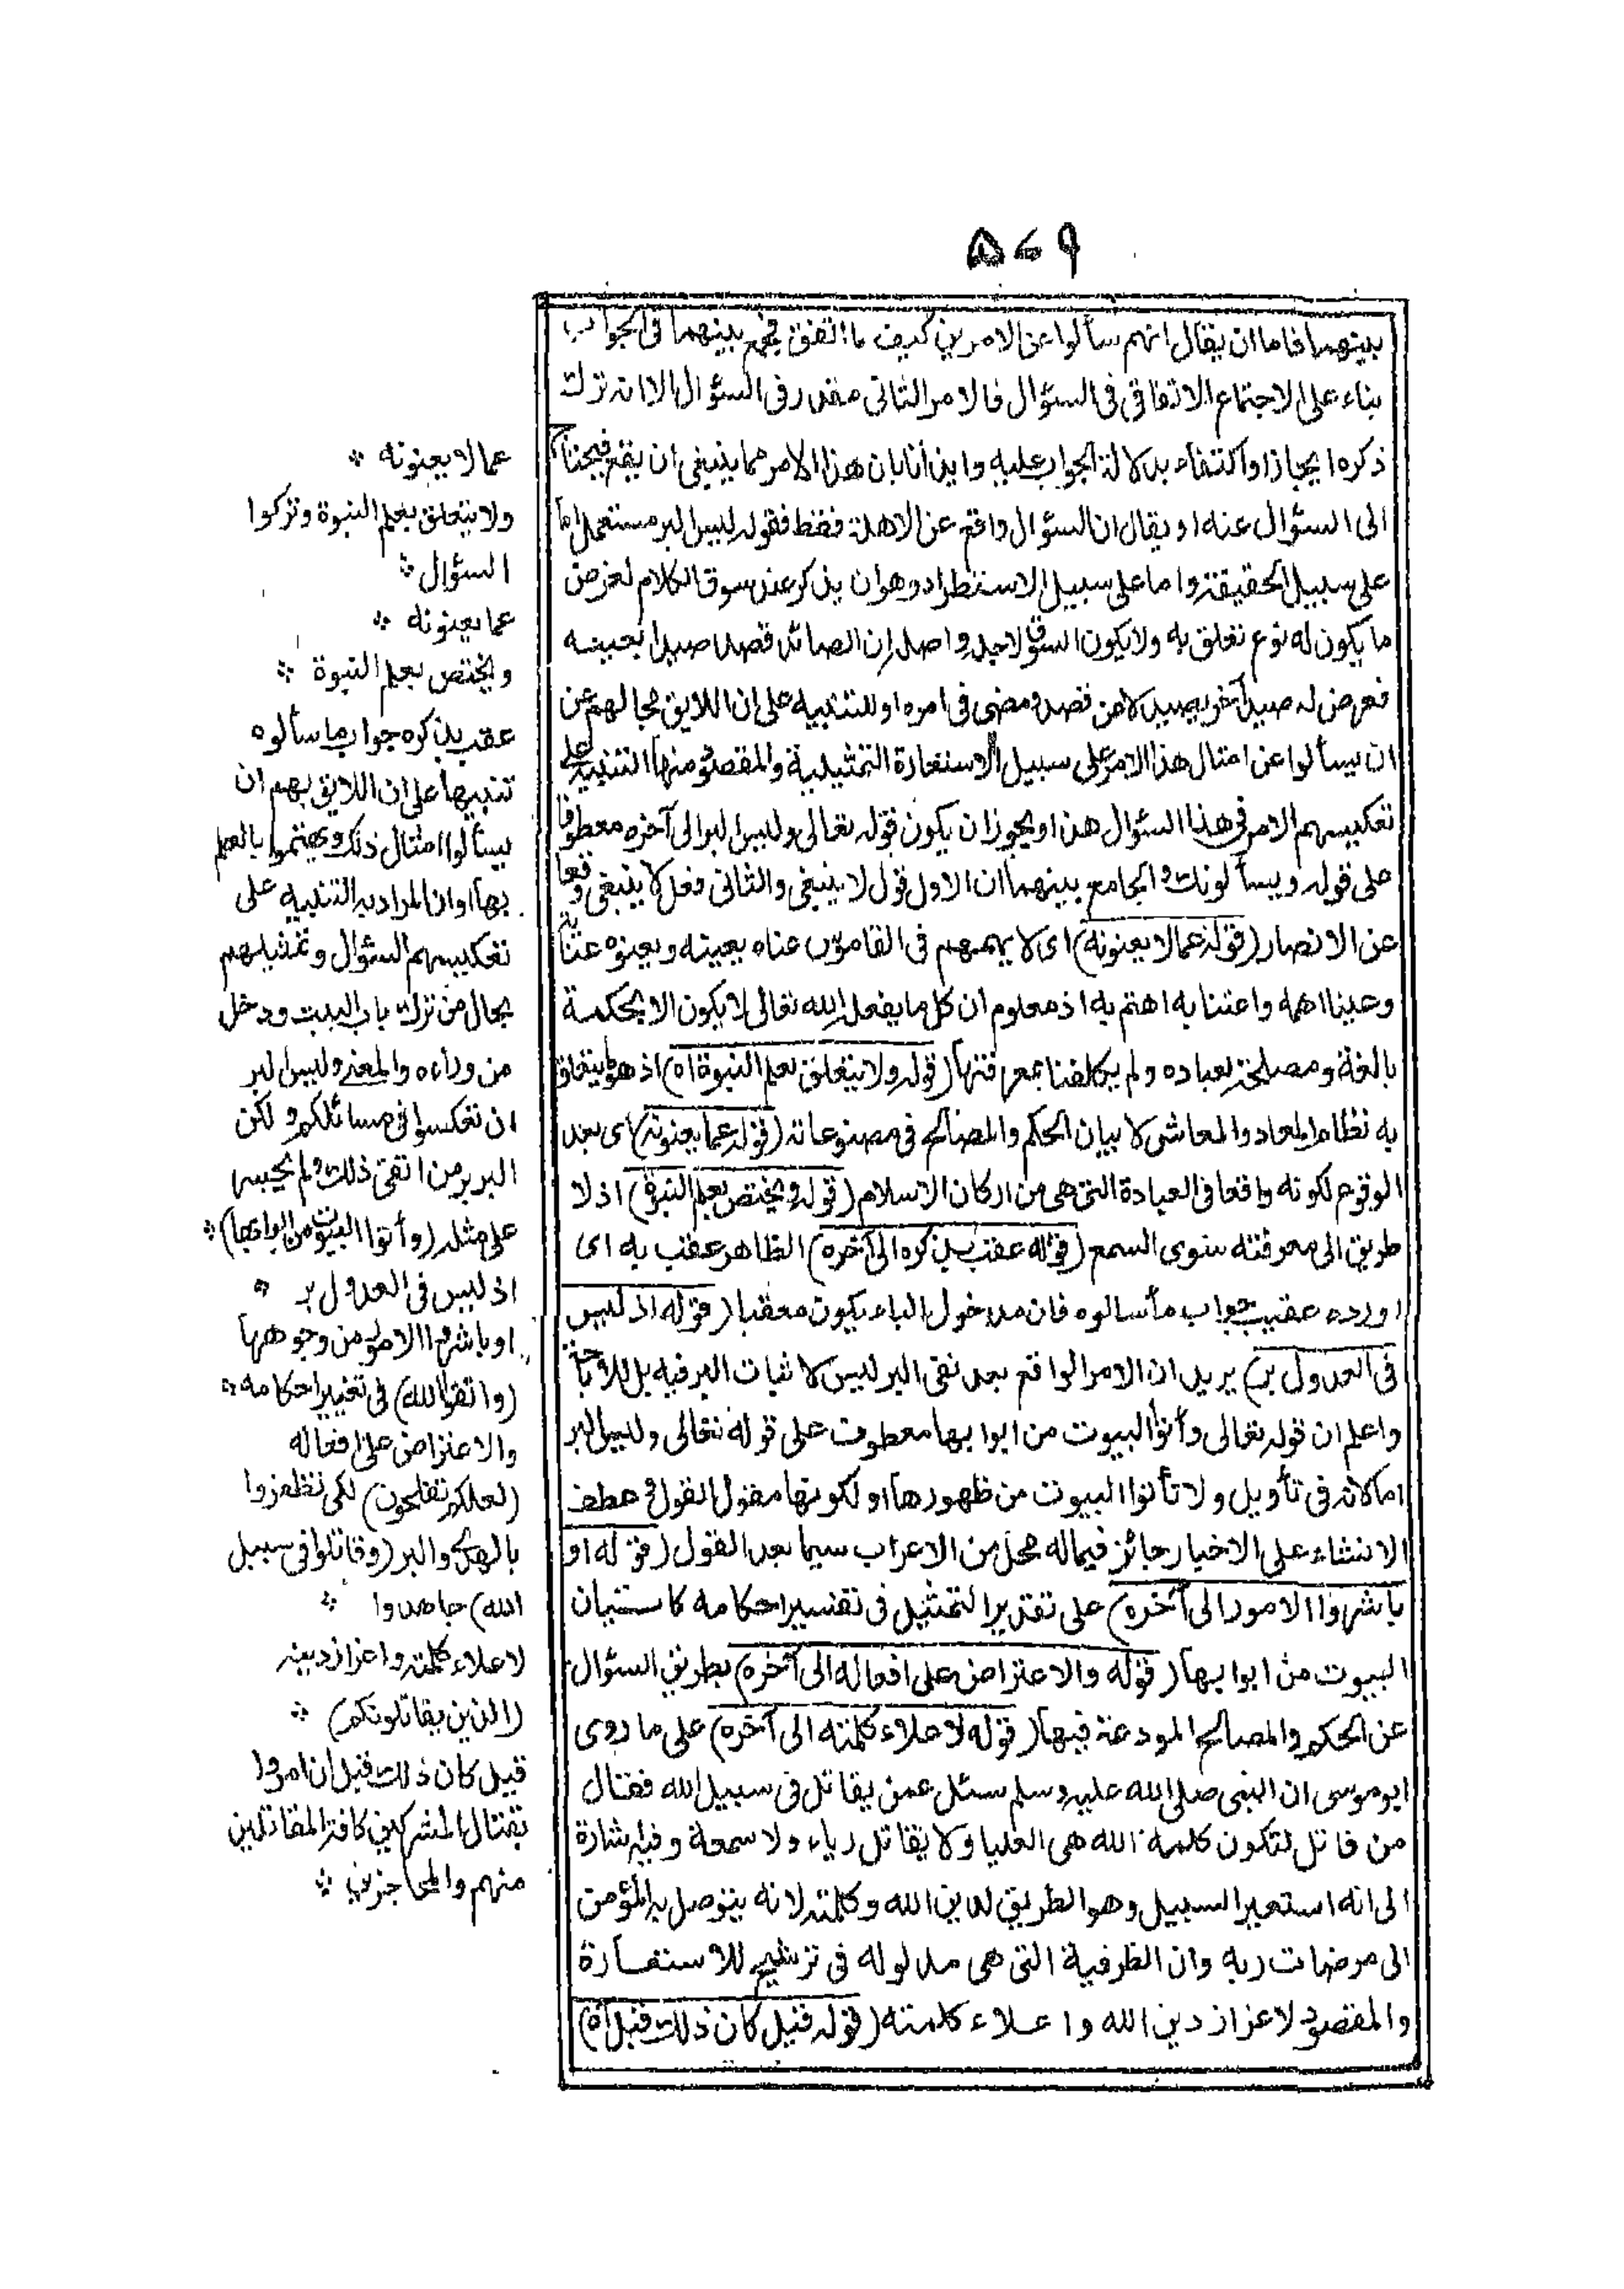 ٥٦٩
بينهما فاما ان يقال انهم سألوا عن الامرين كيف ما اتفق فجمع بينهما فى الجواب
بناء على الاجتماع الاتفاقى فى السؤال فالامر الثانى مقدر فى السؤال الا انه ترك
ذكره ايجازا واكتفاء بدلالة الجواب عليه وايذانا بان هذا الامر مما ينبغى ان يقع فيحتاج
الى السؤال عنه او يقال ان السؤال واقع عن الاهلة فقط فقوله ليس البر مستعمل اما
على سبيل الحقيقة واما على سبيل الاستطراد وهو ان يذكر عند سوق الكلام لغرض
ما يكون له نوع تعلق به ولا يكون السوق لاجله واصله ان الصائد قصد صيدا بعينه
فعرض له صيد آخر يصيد لا عن قصد ومضى فى امره او للتنبيه على ان اللائق بحالهم عن
ان يسألوا عن امثال هذا الامر على سبيل الاستعارة التمثيلية والمقصود منها التنبيه على
تعكيسهم الامر فى هذا السؤال هذا ويجوز ان يكون قوله تعالى وليس البر الى آخره معطوفا
على قوله ويسألونك والجامع بينهما ان الاول قول لا ينبغى والثانى فعل لا ينبغى وقعا
عن الانصار (قوله عما لا يعنونه) اى لا يهمهم فى القاموس عناه يعينه ويعنوه عناية
وعينا اهمه واعتنا به اهتم به اذ معلوم ان كل ما يفعل الله تعالى لا يكون الا بحكمة
بالغة ومصلحة لعباده ولم يكلفنا بمعرفتها (قوله ولا يتعلق بعلم النبوة اه) اذ هو ما يتعلق
به نظام المعاد والمعاش لا بيان الحكم والمصالح فى مصنوعاته (قوله عما يعنونه) اى بعد
الوقوع لكونه واقعا فى العبادة التى هى من اركان الاسلام (قوله ويختص بعلم النبوة) اذ لا
طريق الى معرفته سوى السمع (قوله عقب بذكره الى آخره) الظاهر عقب به اى
اورده عقيب جواب ما سالوه فان مدخول الباء يكون معقبا (قوله اذ ليس
فى العدول بر) يريد ان الامر الواقع بعد نفى البر ليس لاثبات البر فيه بل للاباحة
واعلم ان قوله تعالى وأتوا البيوت من ابوابها معطوف على قوله تعالى وليس البر
اما لانه فى تأويل ولا تأتوا البيوت من ظهورها او لكونها مقول القول وعطف
الانشاء على الاخبار جائز فيما له محل من الاعراب سيما بعد القول (قوله او
باشروا الامور الى آخره) على تقدير التمثيل فى تفسير احكامه كاستيان
البيوت من ابوابها (قوله والاعتراض على افعاله الى آخره) بطريق السؤال
عن الحكم والمصالح المودعة فيها (قوله لاعلاء كلمته الى آخره) على ما روى
ابو موسى ان النبى صلى الله عليه وسلم سئل عمن يقاتل فى سبيل الله فقال
من قاتل لتكون كلمة الله هى العليا ولا يقاتل رياء ولا سمعة وفيه اشارة
الى انه استعير السبيل وهو الطريق لدين الله وكلمته لانه يتوصل به المؤمن
الى مرضات ربه وان الظرفية التى هى مدلوله فى ترشيح للاستعارة
والمقصود لاعزاز دين الله واعلاء كلمته (قوله قيل كان ذلك قبل اه)
عما لا يعنونه
ولا يتعلق بعلم النبوة وتركوا
السؤال
عما يعنونه
ويختص بعلم النبوة
عقب بذكره جواب ما سألوه
تنبيها على ان اللائق بهم ان
يسألوا امثال ذلك ويهتموا بالعلم
بها او ان المراد به التنبيه على
تعكيسهم السؤال وتمثيلهم
بحال من ترك باب البيت ودخل
من وراءه والمعنى وليس البر
ان تعكسوا فى مسائلكم ولكن
البر بر من اتقى ذلك ولم يجسر
على مثله (وأتوا البيوت من ابوابها)
اذ ليس فى العدول بر
او باشروا الامور من وجوهها
(واتقوا الله) فى تغيير احكامه
والاعتراض على افعاله
(لعلكم تفلحون) لكى تظفروا
بالهدى والبر (وقاتلوا فى سبيل
الله) جاهدوا
لاعلاء كلمته واعزاز دينه
(الذين يقاتلونكم)
قيل كان ذلك قبل ان امروا
بقتال المشركين كافة المقاتلين
منهم والمحاجزين